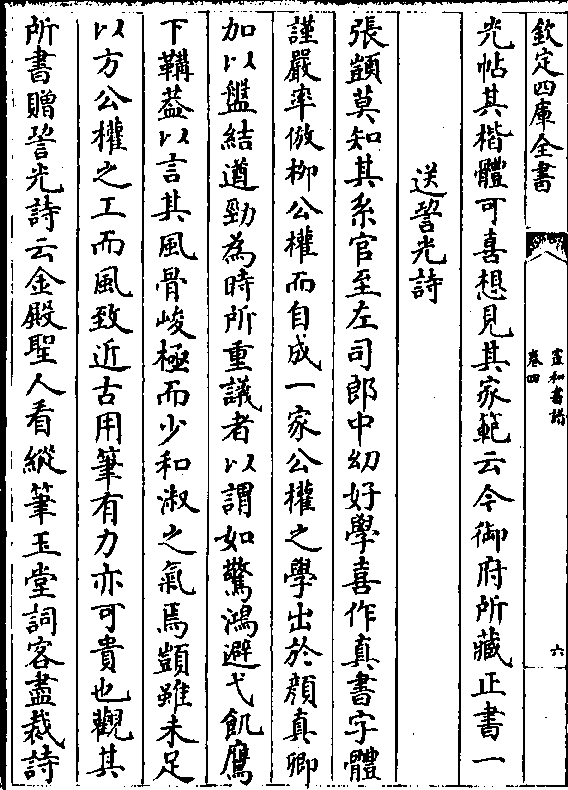 欽定四庫全書
宣和書譜
卷四
六
光帖其楷體可喜想見其家範云今御府所藏正書一
送㝧光詩
張顗莫知其系官至左司郎中幼好學喜作真書字體
謹嚴率倣柳公權而自成一家公權之學出於顔真卿
加以盤結遒勁為時所重議者以謂如驚鴻避弋飢鷹
下鞲葢以言其風骨峻極而少和淑之氣焉顗雖未足
以方公權之工而風致近古用筆有力亦可貴也觀其
所書贈㝧光詩云金殿聖人看縱筆玉堂詞客盡裁詩